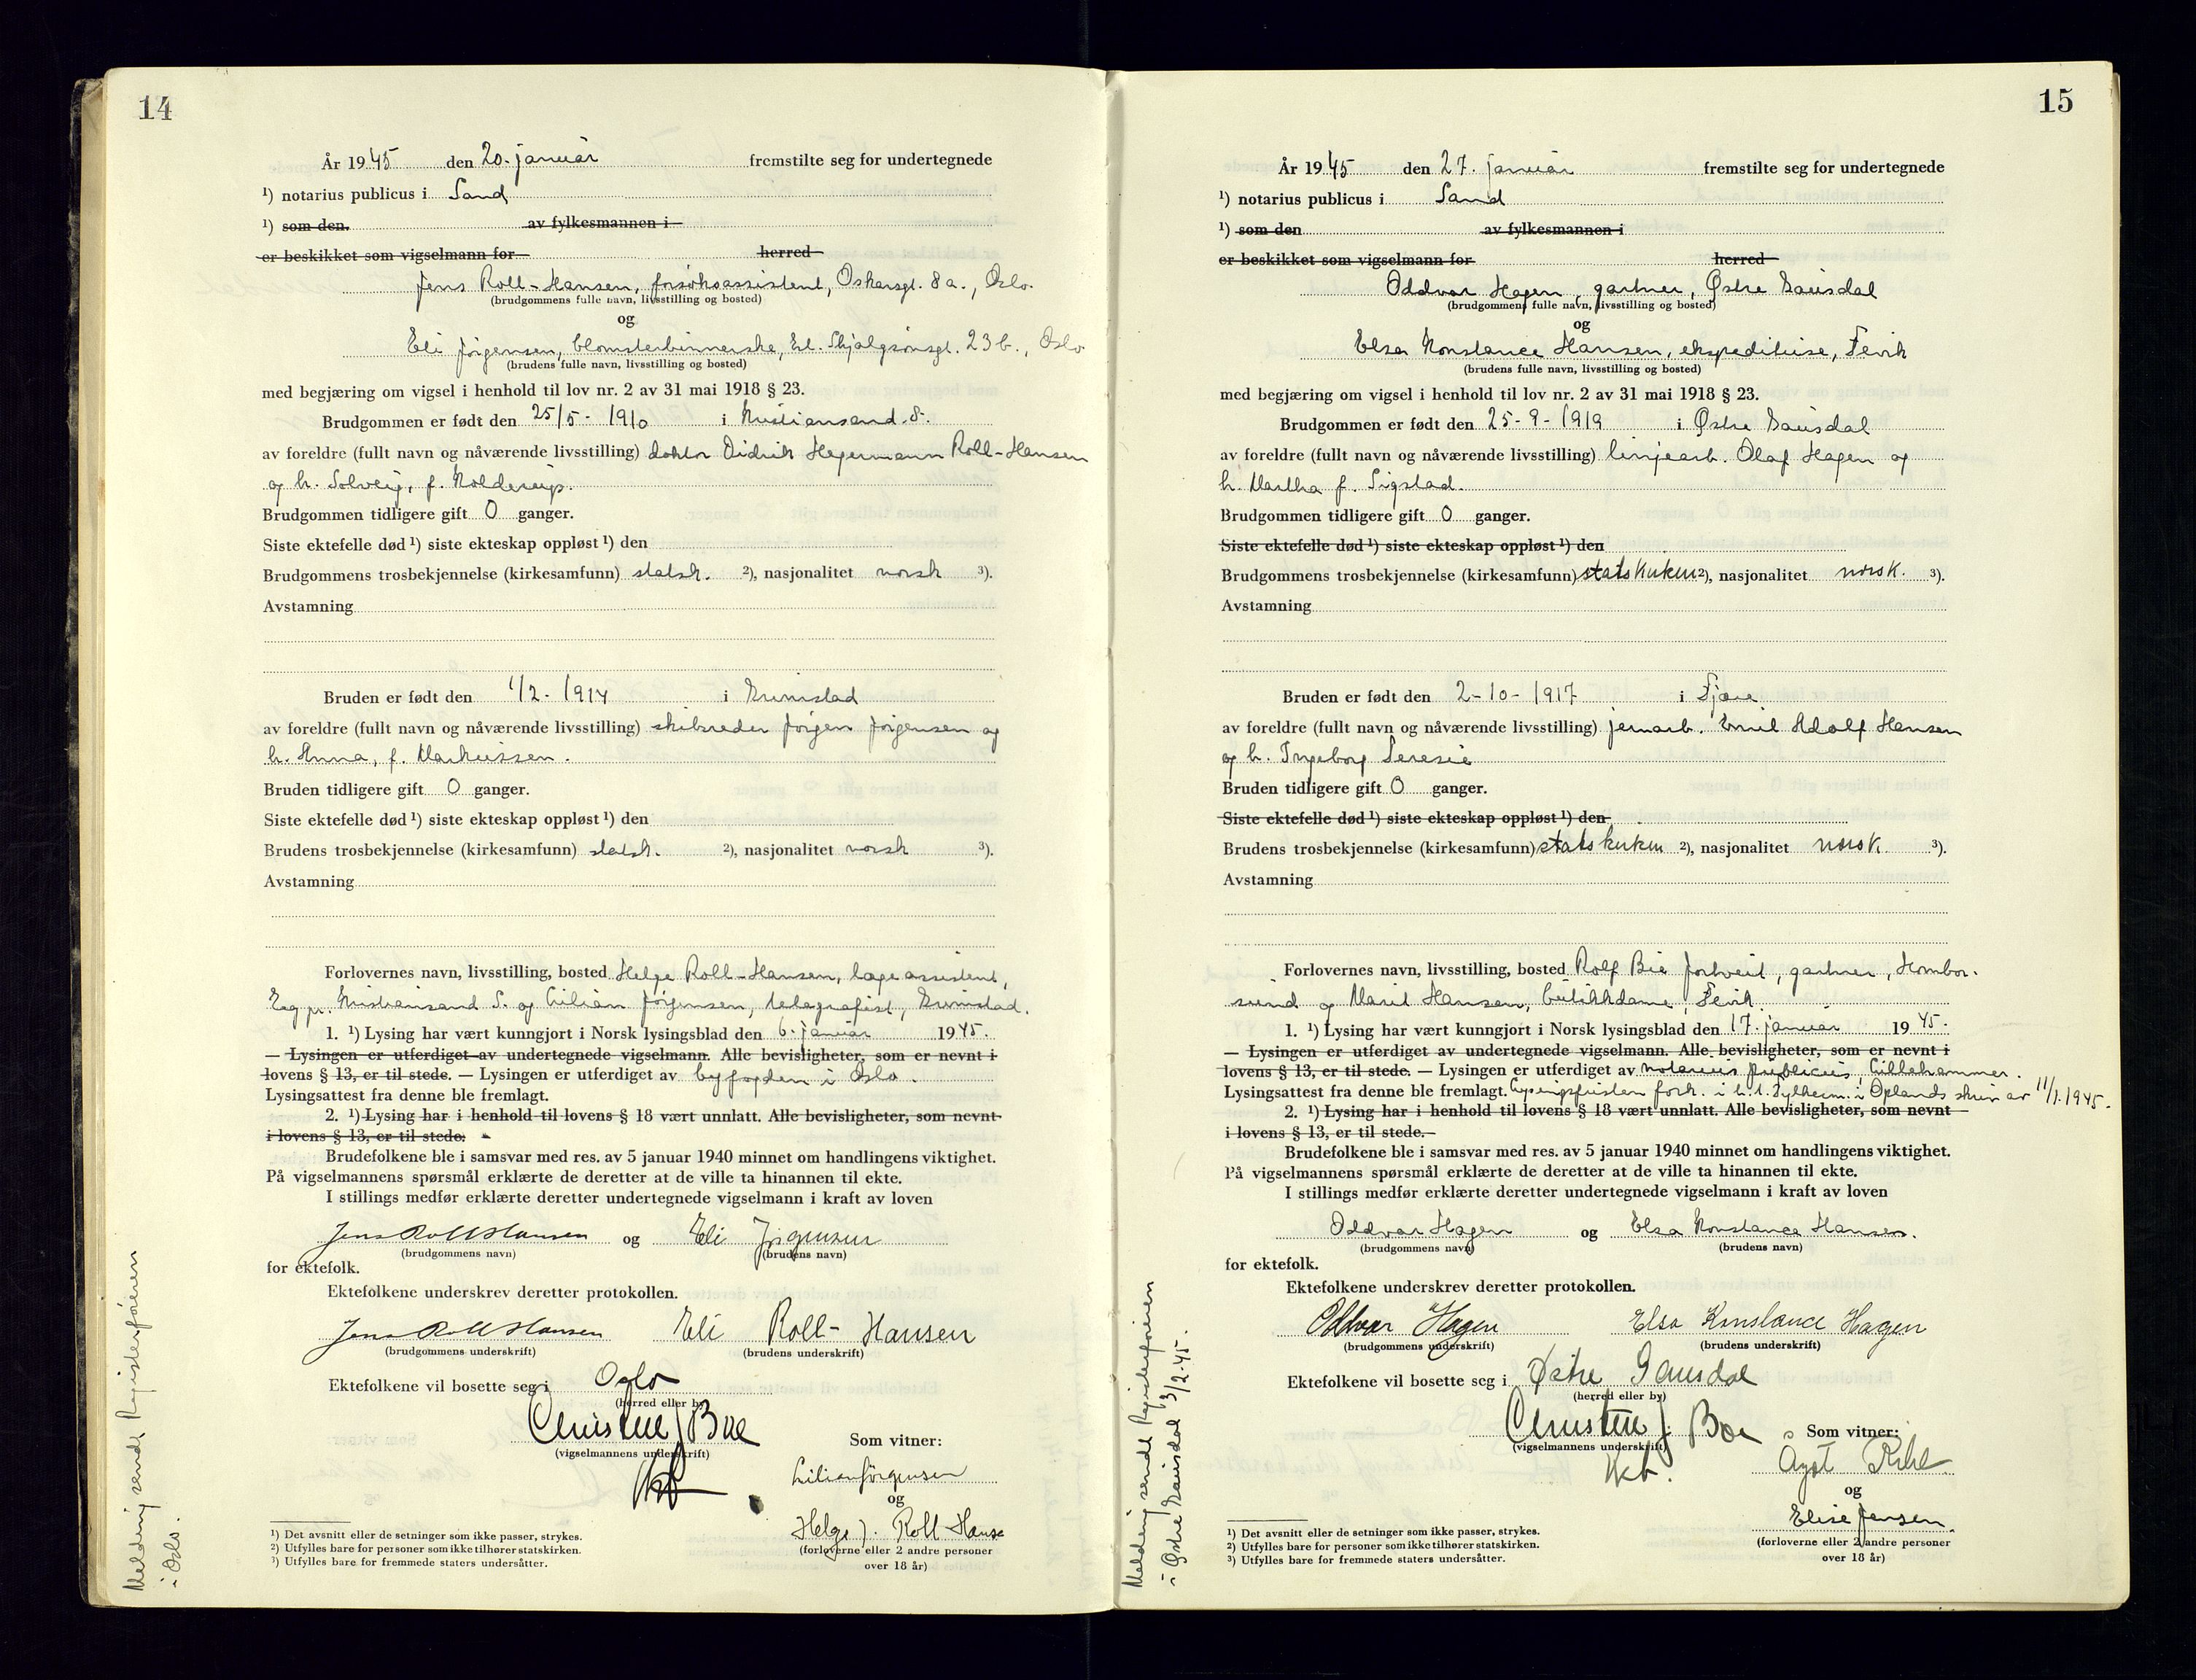 14
År 1945 den 20. januar fremstilte seg for undertegnede
¹) notarius publicus i Sand
¹) som den av fylkesmannen i
er beskikket som vigselmann for herred
Jens Roll-Hansen, forsøksassistent, Oskarsgt. 8 a., Oslo.
(brudgommens fulle navn, livsstilling og bosted)
og
Eli Jørgensen, blomsterbinnerske, Erl. Skjalgsønsgt. 23 b., Oslo
(brudens fulle navn, livsstilling og bosted)
med begjæring om vigsel i henhold til lov nr. 2 av 31 mai 1918 § 23.
Brudgommen er født den 25/5 - 1910 i Kristiansand. S.
av foreldre (fullt navn og nåværende livsstilling) doktor Didrik Hegermann Roll-Hansen
og h. Solveig, f. Kolderup.
Brudgommen tidligere gift 0 ganger.
Siste ektefelle død ¹) siste ekteskap oppløst ¹) den
Brudgommens trosbekjennelse (kirkesamfunn) statsk. ²), nasjonalitet norsk ³).
Avstamning
Bruden er født den 1/2 - 1914 i Grimstad
av foreldre (fullt navn og nåværende livsstilling) skibsreder Jørgen Jørgensen og
h. Anna, f. Markussen.
Bruden tidligere gift 0 ganger.
Siste ektefelle død ¹) siste ekteskap oppløst ¹) den
Brudens trosbekjennelse (kirkesamfunn) statsk. ²), nasjonalitet norsk ³).
Avstamning
Forlovernes navn, livsstilling, bosted Helge Roll-Hansen, lageassistent,
Eg pr. Kristiansand S. og Lilian Jørgensen, telegrafist, Grimstad.
1. ¹) Lysing har vært kunngjort i Norsk lysingsblad den 6. januar 1945.
— Lysingen er utferdiget av undertegnede vigselmann. Alle bevisligheter, som er nevnt i
lovens § 13, er til stede. — Lysingen er utferdiget av byfogden i Oslo.
Lysingsattest fra denne ble fremlagt.
2. ¹) Lysing har i henhold til lovens § 18 vært unnlatt. Alle bevisligheter, som nevnt
i lovens § 13, er til stede.
Brudefolkene ble i samsvar med res. av 5 januar 1940 minnet om handlingens viktighet.
På vigselmannens spørsmål erklærte de deretter at de ville ta hinannen til ekte.
I stillings medfør erklærte deretter undertegnede vigselmann i kraft av loven
Jens Roll Hansen og Eli Jørgensen
(brudgommens navn) (brudens navn)
for ektefolk.
Ektefolkene underskrev deretter protokollen.
Jens Roll Hansen Eli Roll-Hansen
(brudgommens underskrift) (brudens underskrift)
Ektefolkene vil bosette seg i Oslo
(herred eller by)
Christen J Boe
(vigselmannens underskrift)
Som vitner:
Lilian Jörgensen
og
Helge J. Roll-Hansen
(forloverne eller 2 andre personer
over 18 år)
¹) Det avsnitt eller de setninger som ikke passer, strykes.
²) Utfylles bare for personer som ikke tilhører statskirken.
³) Utfylles bare for fremmede staters undersåtter.
Melding sendt Registerføreren
i Oslo.
15
År 1945 den 27. januar fremstilte seg for undertegnede
¹) notarius publicus i Sand
¹) som den av fylkesmannen i
er beskikket som vigselmann for herred
Oddvar Hagen, gartner, Østre Gausdal
(brudgommens fulle navn, livsstilling og bosted)
og
Elsa Konstance Hansen, ekspeditrise, Fevik
(brudens fulle navn, livsstilling og bosted)
med begjæring om vigsel i henhold til lov nr. 2 av 31 mai 1918 § 23.
Brudgommen er født den 25-9-1919 i Østre Gausdal
av foreldre (fullt navn og nåværende livsstilling) linjearb. Olaf Hagen og
h. Martha f. Sigstad.
Brudgommen tidligere gift 0 ganger.
Siste ektefelle død ¹) siste ekteskap oppløst ¹) den
Brudgommens trosbekjennelse (kirkesamfunn) statskirken ²), nasjonalitet norsk. ³).
Avstamning
Bruden er født den 2-10-1917 i Fjære
av foreldre (fullt navn og nåværende livsstilling) jernarb. Emil Adolf Hansen
og h. Ingeborg Teresie
Bruden tidligere gift 0 ganger.
Siste ektefelle død ¹) siste ekteskap oppløst ¹) den
Brudens trosbekjennelse (kirkesamfunn) statskirken ²), nasjonalitet norsk ³).
Avstamning
Forlovernes navn, livsstilling, bosted Rolf Bie Jortveit, gartner, Hombor-
sund og Marit Hansen, butikkdame, Fevik
1. ¹) Lysing har vært kunngjort i Norsk lysingsblad den 17. januar 1945.
— Lysingen er utferdiget av undertegnede vigselmann. Alle bevisligheter, som er nevnt i
lovens § 13, er til stede. — Lysingen er utferdiget av notarius publicus, Lillehammer.
Lysingsattest fra denne ble fremlagt. Lysingsfristen fork. i h. t. Fylkesm. i Oplands skriv av 11/1.1945.
2. ¹) Lysing har i henhold til lovens § 18 vært unnlatt. Alle bevisligheter, som nevnt
i lovens § 13, er til stede.
Brudefolkene ble i samsvar med res. av 5 januar 1940 minnet om handlingens viktighet.
På vigselmannens spørsmål erklærte de deretter at de ville ta hinannen til ekte.
I stillings medfør erklærte deretter undertegnede vigselmann i kraft av loven
Oddvar Hagen og Elsa Konstance Hansen.
(brudgommens navn) (brudens navn)
for ektefolk.
Ektefolkene underskrev deretter protokollen.
Oddvar Hagen Elsa Konstance Hagen
(brudgommens underskrift) (brudens underskrift)
Ektefolkene vil bosette seg i Østre Gausdal
(herred eller by)
Christen J. Boe
(vigselmannens underskrift)
Som vitner:
Agot
og
Elise Jensen.
(forloverne eller 2 andre personer
over 18 år)
¹) Det avsnitt eller de setninger som ikke passer, strykes.
²) Utfylles bare for personer som ikke tilhører statskirken.
³) Utfylles bare for fremmede staters undersåtter.
Melding sendt Registerføreren
i Østre Gausdal 3/2-45.